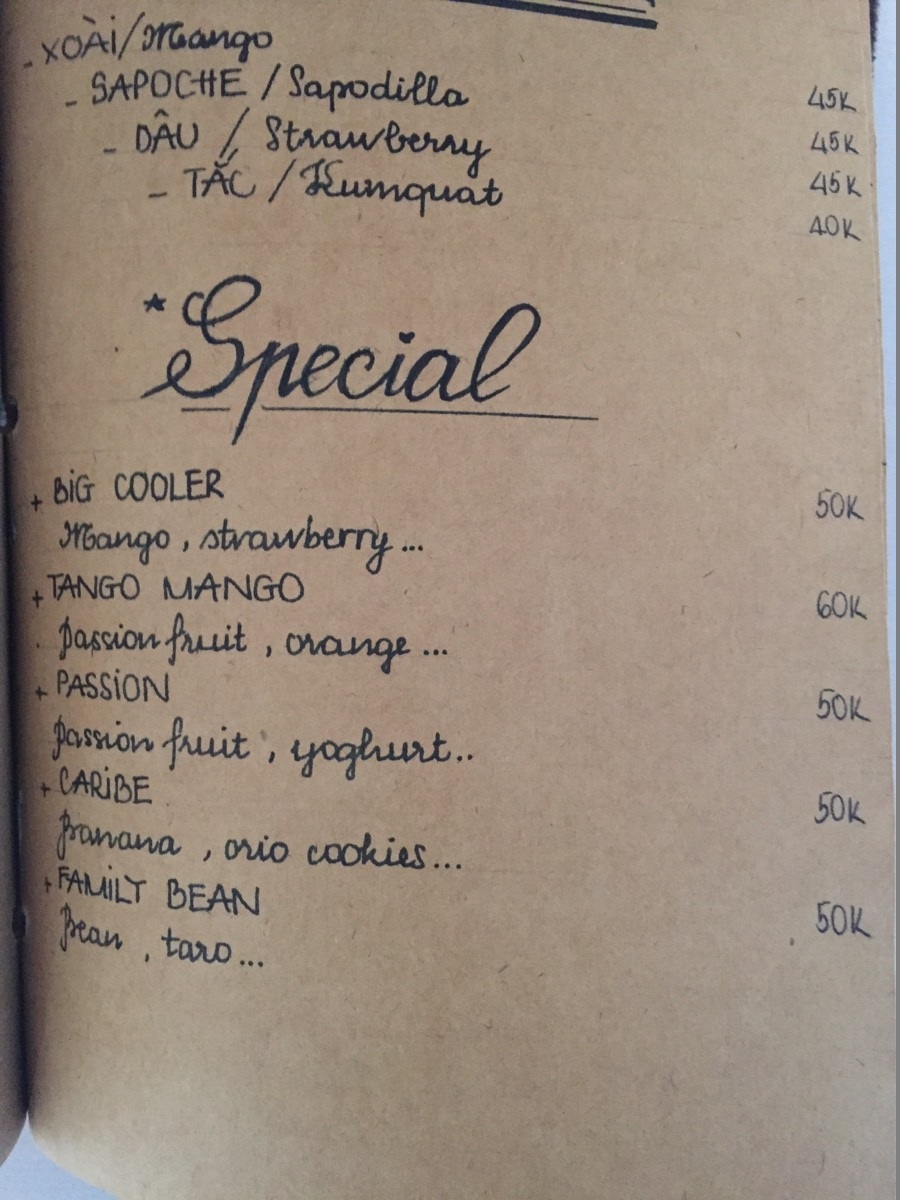 - XOÀI/Mango 45K
- SAPOCHE / Sapodilla 45K
- DÂU / Strawberry 45K
- TẮC / Kumquat 40K
* Special
+ BiG COOLER 50K
Mango, strawberry...
+ TANGO MANGO 60K
Passion fruit, orange...
+ PASSiON 50K
Passion fruit, yoghurt..
+ CARiBE 50K
Banana, orio cookies...
+ FAMiLT BEAN 50K
Bean, taro...